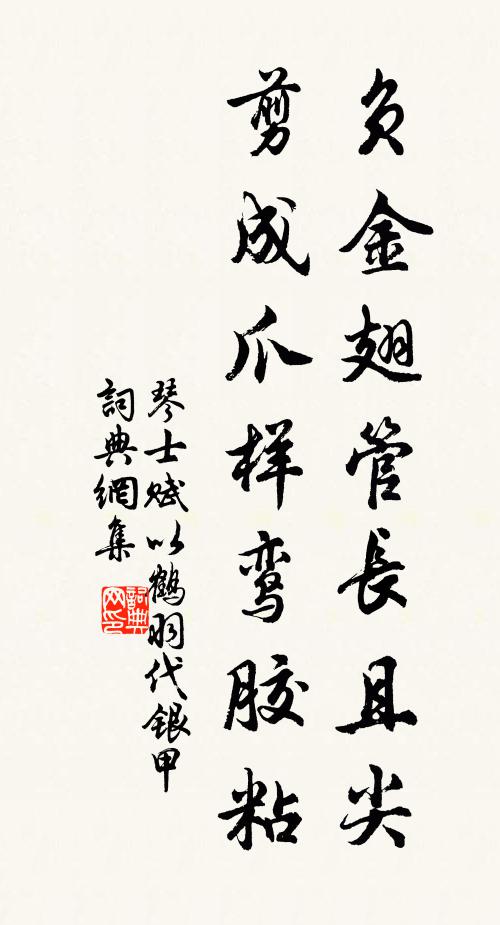 负金翅管長且尖
剪成爪样鸾胶粘
琴士赋以鶴羽代銀甲
詞典網集
詞典网印